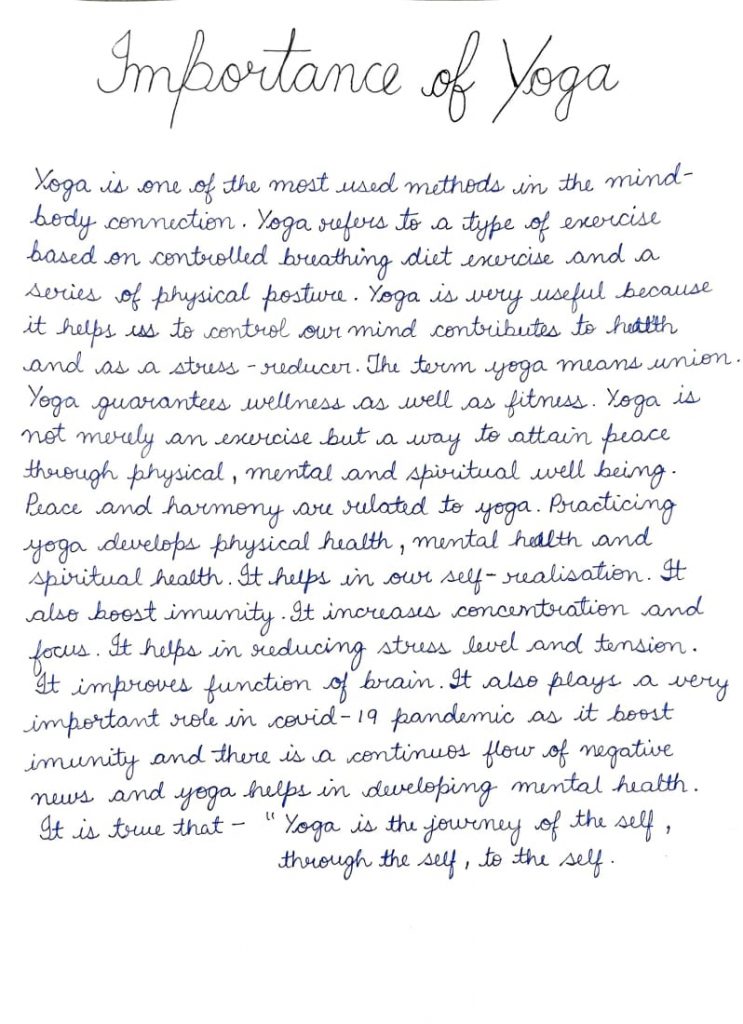 Importance of Yoga
Yoga is one of the most used methods in the mind-
body connection. Yoga refers to a type of exercise
based on controlled breathing diet exercise and a
series of physical posture. Yoga is very useful because
it helps us to control our mind contributes to health
and as a stress-reducer. The term yoga means union.
Yoga guarantees wellness as well as fitness. Yoga is
not merely an exercise but a way to attain peace
through physical, mental and spiritual well being.
Peace and harmony are related to yoga. Practicing
yoga develops physical health, mental health and
spiritual health. It helps in our self-realisation. It
also boost imunity. It increases concentration and
focus. It helps in reducing stress level and tension.
It improves function of brain. It also plays a very
important role in covid-19 pandemic as it boost
imunity and there is a continuos flow of negative
news and yoga helps in developing mental health.
It is true that - " Yoga is the journey of the self,
through the self, to the self.